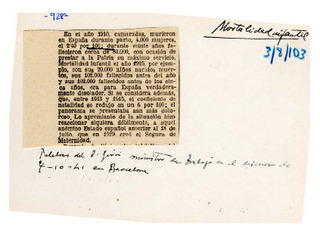 -928-
Mortalidad infantil
3/8/103
En el año 1940, camaradas, murieron
en España durante parto, 4.000 mujeres,
el 2'40 por 100; durante veinte años fa-
llecieron cerca de 80.000, con ocasión de
prestar a la Patria su máximo servicio.
Mortalidad infantil: el año 1935, por ejem-
plo, con sus 20.000 niños nacidos muer-
tos, sus 102.000 fallecidos antes del año
y sus 102.000 fallecidos antes de los cin-
co años, era para España verdadera-
mente desolador. Si se considera además,
que, entre 1913 y 1945, el coeficiente de
natalidad se redujo en un 6 por 100; el
panorama se presentaba aún más dolo-
roso. Lo apremiante de la situación hizo
reaccionar siquiera débilmente, a aquel
anémico Estado español anterior al 18 de
julio, que en 1929 creó el Seguro de
Maternidad.
Palabras del Sr. Girón ministro de Trabajo en el discurso de
4-10-41 en Barcelona